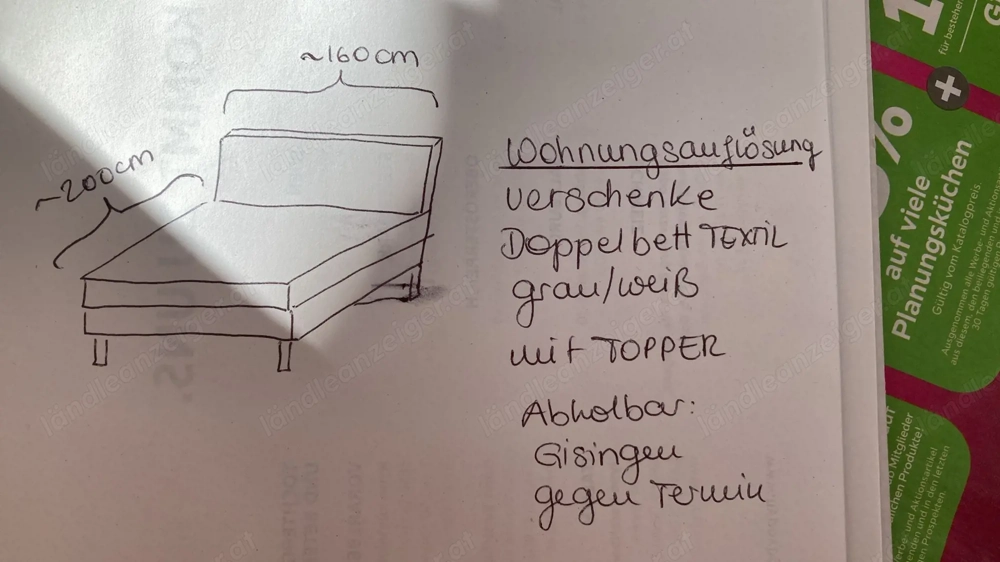 ~160cm
~200cm
Wohnungsauflösung
verschenke
Doppelbett TEXTIL
grau/weiß
mit TOPPER
Abholbar:
Gisingen
gegen Termin
für bestehen
%
+
auf viele
Planungsküchen
Gültig vom Katalogpreis.
Ausgenommen alle Werbe- und Aktions
aus diesem, den beiliegenden und
30 Tagen gültigen
Mitglieder
lichen Produkte!
erbe- und Aktionsartikel
enden und in den letzten
en Prospekten.
ländleanzeiger.at